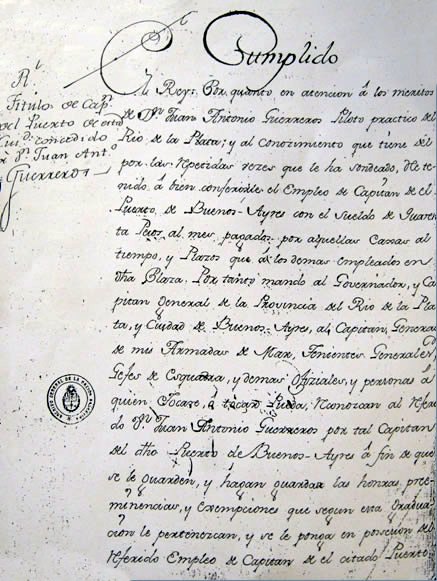 Cumplido
Rl.
Titulo de Capn.
del Puerto de
concedido
à Dn. Juan Anto.
Guerreros
El Rey. Por quanto en atencion à los meritos
de Dn. Juan Antonio Guerreros Piloto practico del
Rio de la Plata; y al Conozimiento que tiene del
por las repetidas vezes que le ha sondeado, He te-
nido à bien conferirle el Empleo de Capitan de el
Puerto de Buenos-Ayres con el Sueldo de Quaren-
ta Pesos al mes pagados por aquellas Caxas al
tiempo, y Plazos que à los demas empleados en
dha Plaza. Por tanto mando al Governador, y Ca-
pitan General de la Provincia del Rio de la Pla-
ta, y Ciudad de Buenos-Ayres, al Capitan General
de mis Armadas de Mar, Tenientes Generales,
Gefes de Esquadra, y demas Ofiziales, y personas à
quien Tocare, ò tocar Pueda, Reconozcan al Referi-
do Dn. Juan Antonio Guerreros por tal Capitan
del dho Puerto de Buenos-Ayres à fin de que
se le guarden, y hagan guardar las honras, pree-
minencias, y exempciones que segun esta Gradua-
cion le pertenezcan, y se le ponga en posesion del
Referido Empleo de Capitan de el citado Puerto